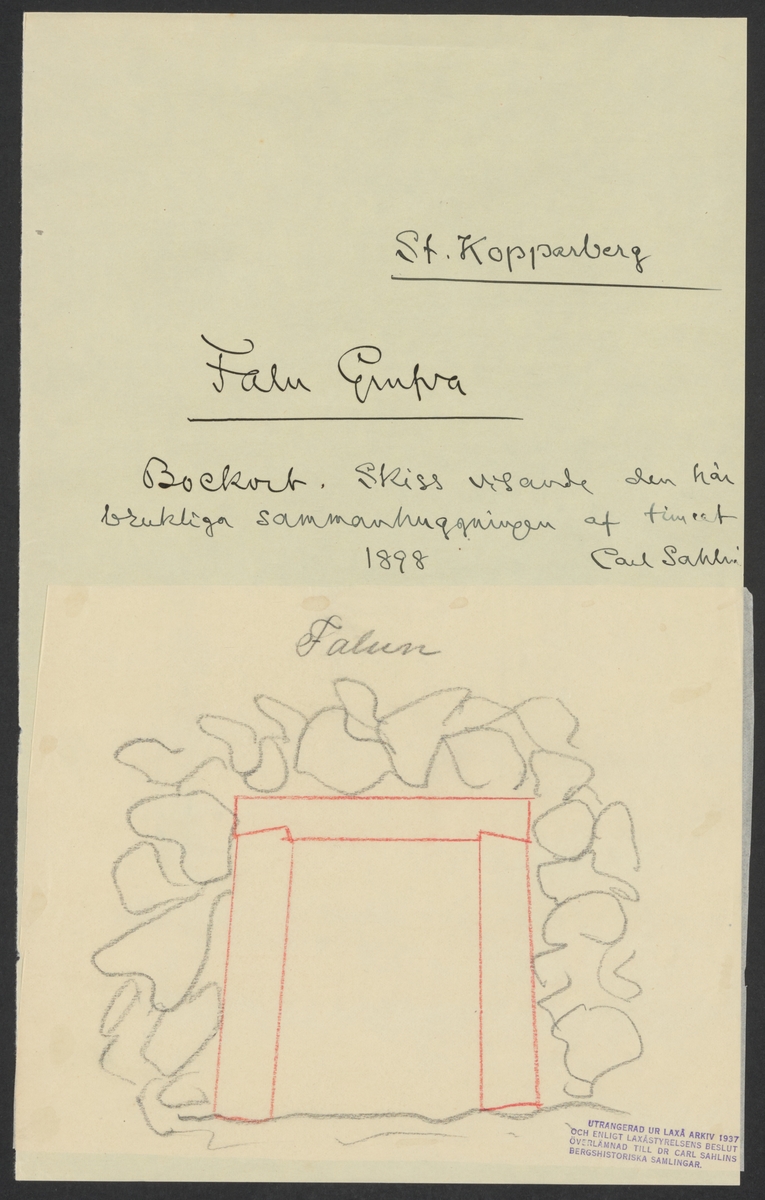 St. Kopparberg
Falu Grufva
Bockort. Skiss visande den här
brukliga sammanhuggningen af timret
1898 Carl Sahlin
Falun
UTRANGERAD UR LAXÅ ARKIV 1937
OCH ENLIGT LAXÅSTYRELSENS BESLUT
ÖVERLÄMNAD TILL DR CARL SAHLINS
BERGSHISTORISKA SAMLINGAR.